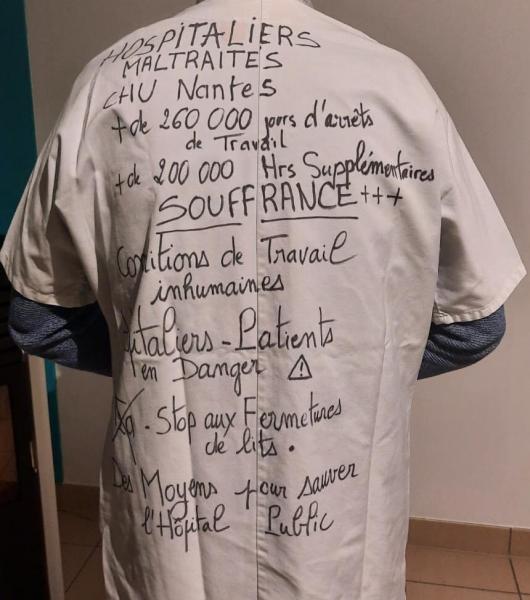 HOSPITALIERS
MALTRAITES
CHU Nantes
+ de 260 000 jours d'arrêts
de Travail
+ de 200 000 Hrs Supplémentaires
SOUFFRANCE +++
Conditions de Travail
inhumaines
pitaliers - Patients
en Danger ⚠
. Stop aux Fermetures
de lits .
Des Moyens pour sauver
l'Hôpital Public